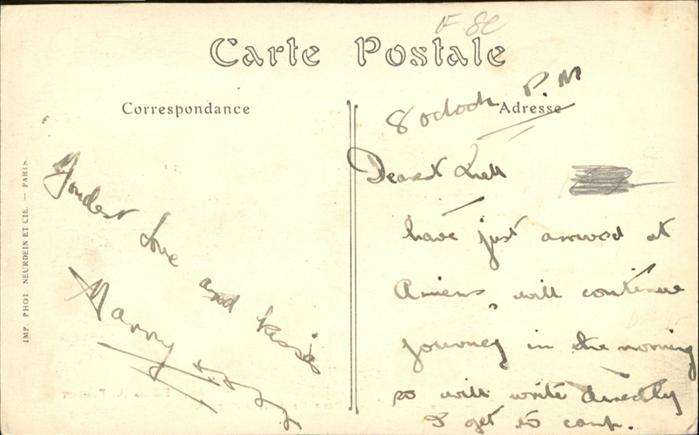 F 8c
Carte Postale
Correspondance
Adresse
8 oclock P.M
Dearest
have just arrived at
Amiens, will continue
journey in the morning
so will write directly
I get to camp.
Fondest love and kisses
Harry xxxx
IMP. PHOT. NEURDEIN ET CIE. — PARIS